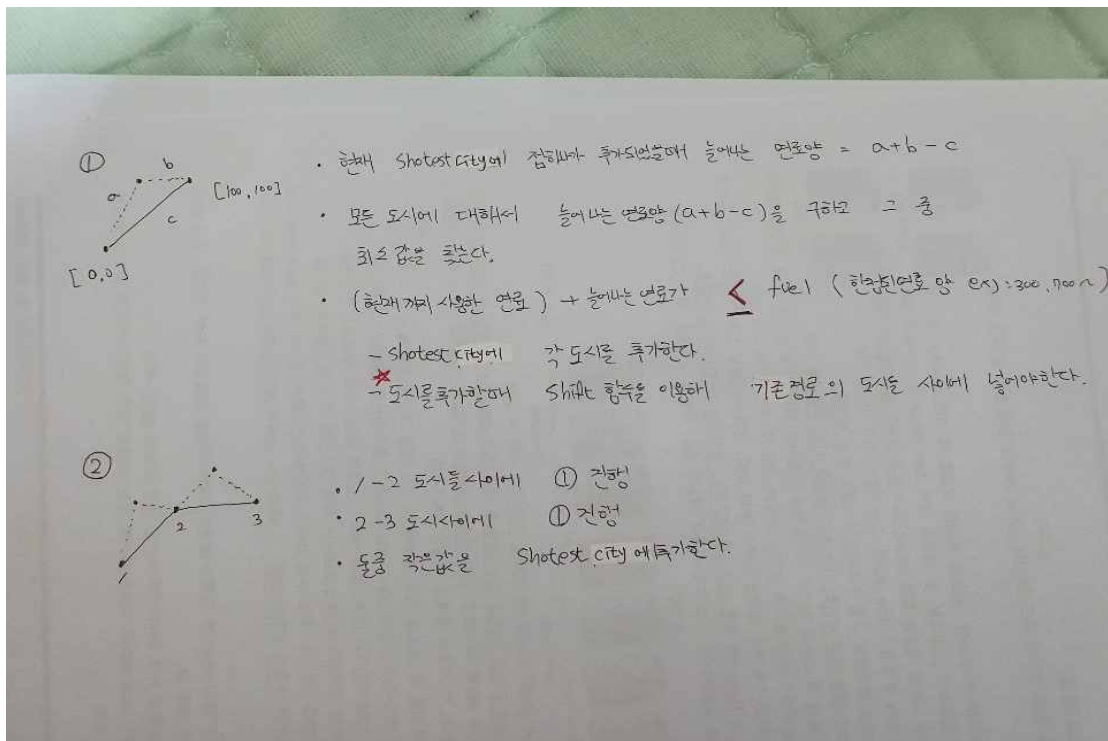 ①
a
b
c
[100,100]
[0,0]
· 현재 Shotest city에 추가되었을때 늘어나는 연료양 = a+b-c
· 모든 도시에 대해서 늘어나는 연료양(a+b-c)을 구하고 그 중
최소 값을 찾는다.
· (현재까지 사용한 연료) + 늘어나는 연료가 < fuel (한정된연료 양 ex):300,
- Shotest city에 각 도시를 추가한다.
☆
- 도시를추가할때 Shift 함수을 이용해 기존경로의 도시들 사이에 넣어야한다.
②
1
2
3
· 1-2 도시들사이에 ① 진행
· 2-3 도시사이에 ① 진행
· 둘중 작은값을 Shotest city에추가한다.